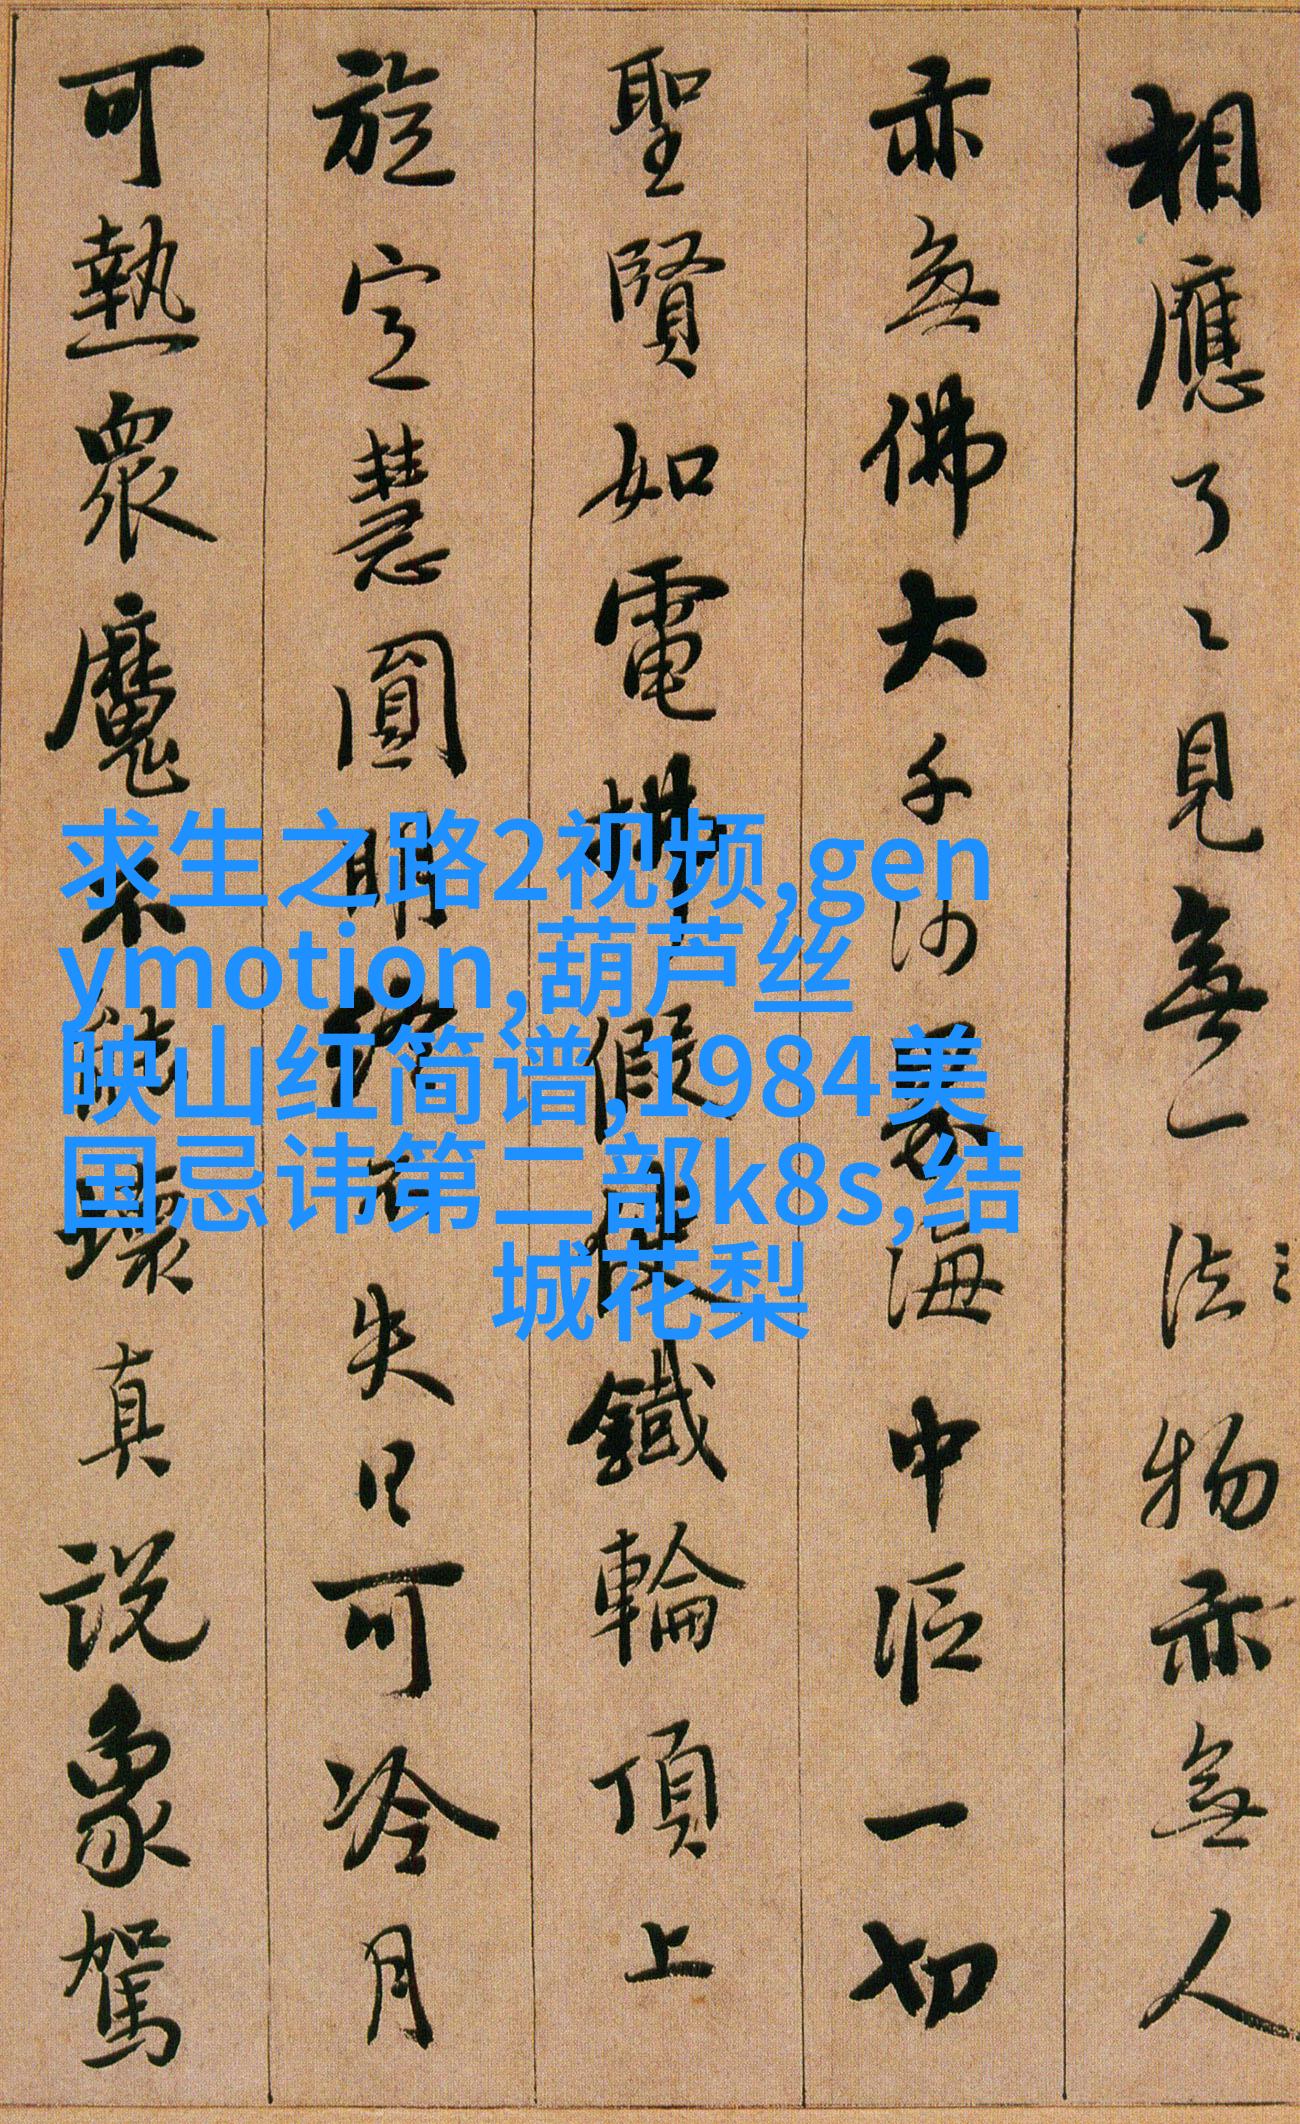 相應了々見無一法物亦無人
亦無佛大千沙界海中漚一切
聖賢如電拂假使鐵輪頂上
旋定慧圓明終不失日可冷月
可熱衆魔不能壞真説象駕
求生之路2视频,gen
ymotion,葫芦丝
映山红简谱,1984美
国忌讳第二部k8s,结
城花梨